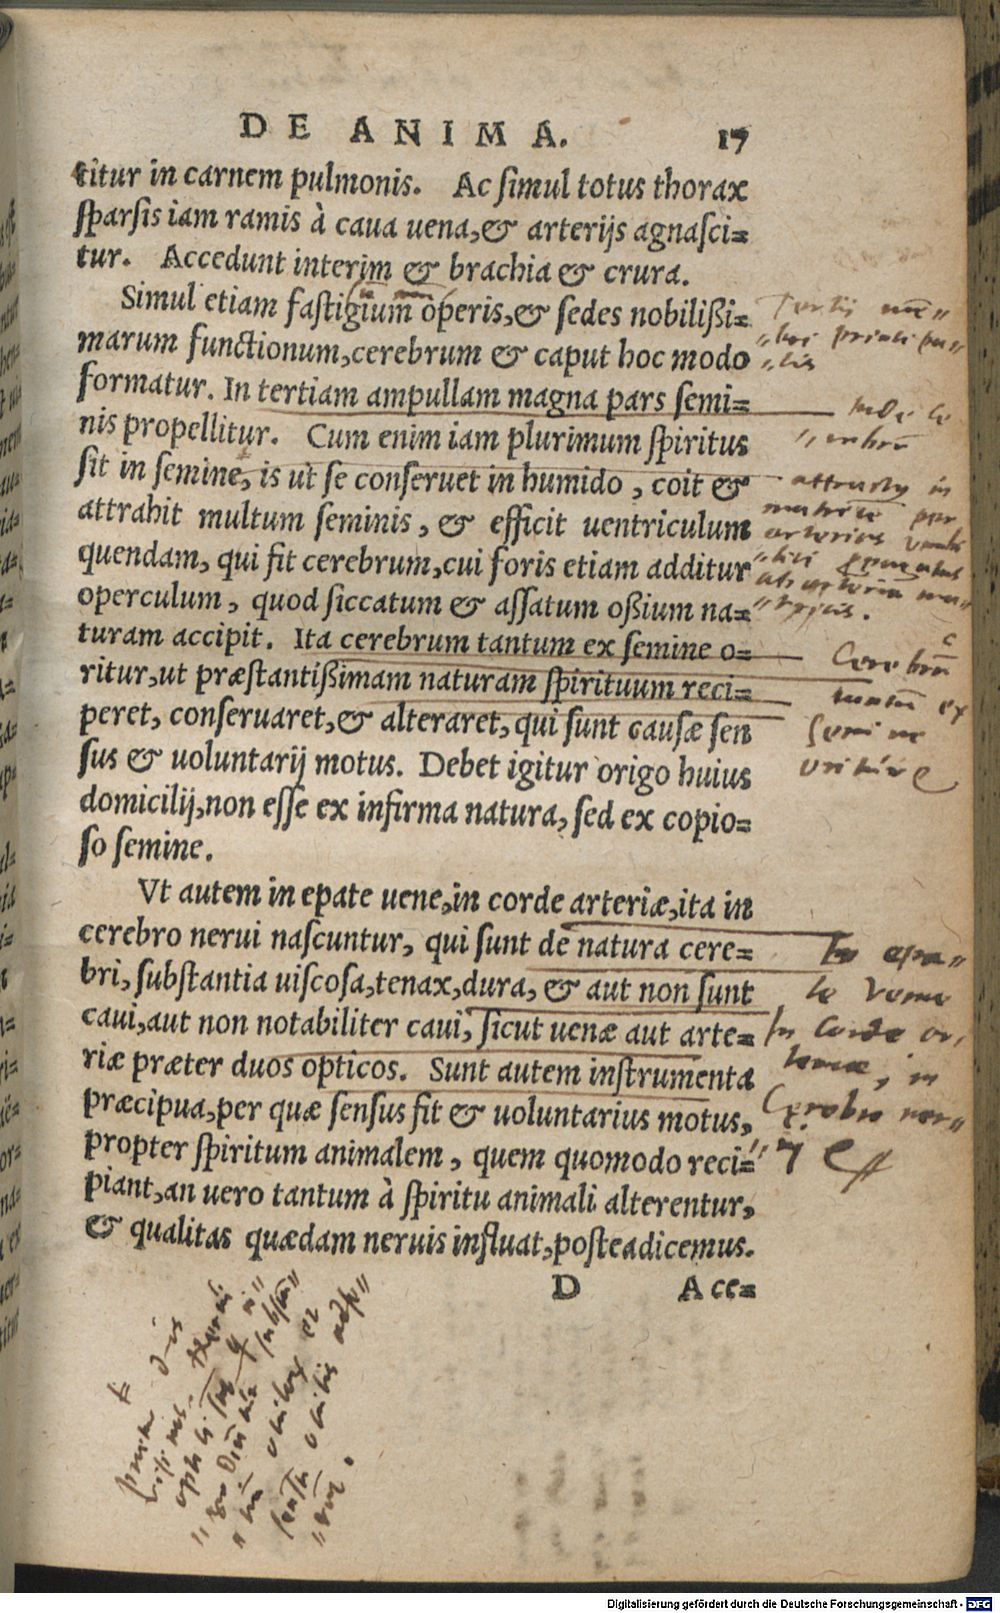 DE ANIMA. 17
titur in carnem pulmonis. Ac simul totus thorax
sparsis iam ramis à caua uena, & arterijs agnasci=
tur. Accedunt interim & brachia & crura.
Simul etiam fastigium operis, & sedes nobilißi=
marum functionum, cerebrum & caput hoc modo
formatur. In tertiam ampullam magna pars semi=
nis propellitur. Cum enim iam plurimum spiritus
sit in semine, is ut se conseruet in humido, coit &
attrahit multum seminis, & efficit uentriculum
quendam, qui fit cerebrum, cui foris etiam additur
operculum, quod siccatum & assatum oßium na=
turam accipit. Ita cerebrum tantum ex semine o=
ritur, ut præstantißimam naturam spirituum reci=
peret, conseruaret, & alteraret, qui sunt causæ sen
sus & uoluntarij motus. Debet igitur origo huius
domicilij, non esse ex infirma natura, sed ex copio=
so semine.
Vt autem in epate uene, in corde arteriæ, ita in
cerebro nerui nascuntur, qui sunt de natura cere=
bri, substantia uiscosa, tenax, dura, & aut non sunt
caui, aut non notabiliter caui, sicut uenæ aut arte=
riæ præter duos opticos. Sunt autem instrumenta
præcipua, per quæ sensus fit & uoluntarius motus,
propter spiritum animalem, quem quomodo reci=
piant, an uero tantum à spiritu animali alterentur,
& qualitas quædam neruis influat, postea dicemus.
D Acce=
Cerebrū
tantū ex
semine
oritur
In epa=
te Venae
In Corde ar
teriae, in
Cerebro ner=
Digitalisierung gefördert durch die Deutsche Forschungsgemeinschaft - DFG